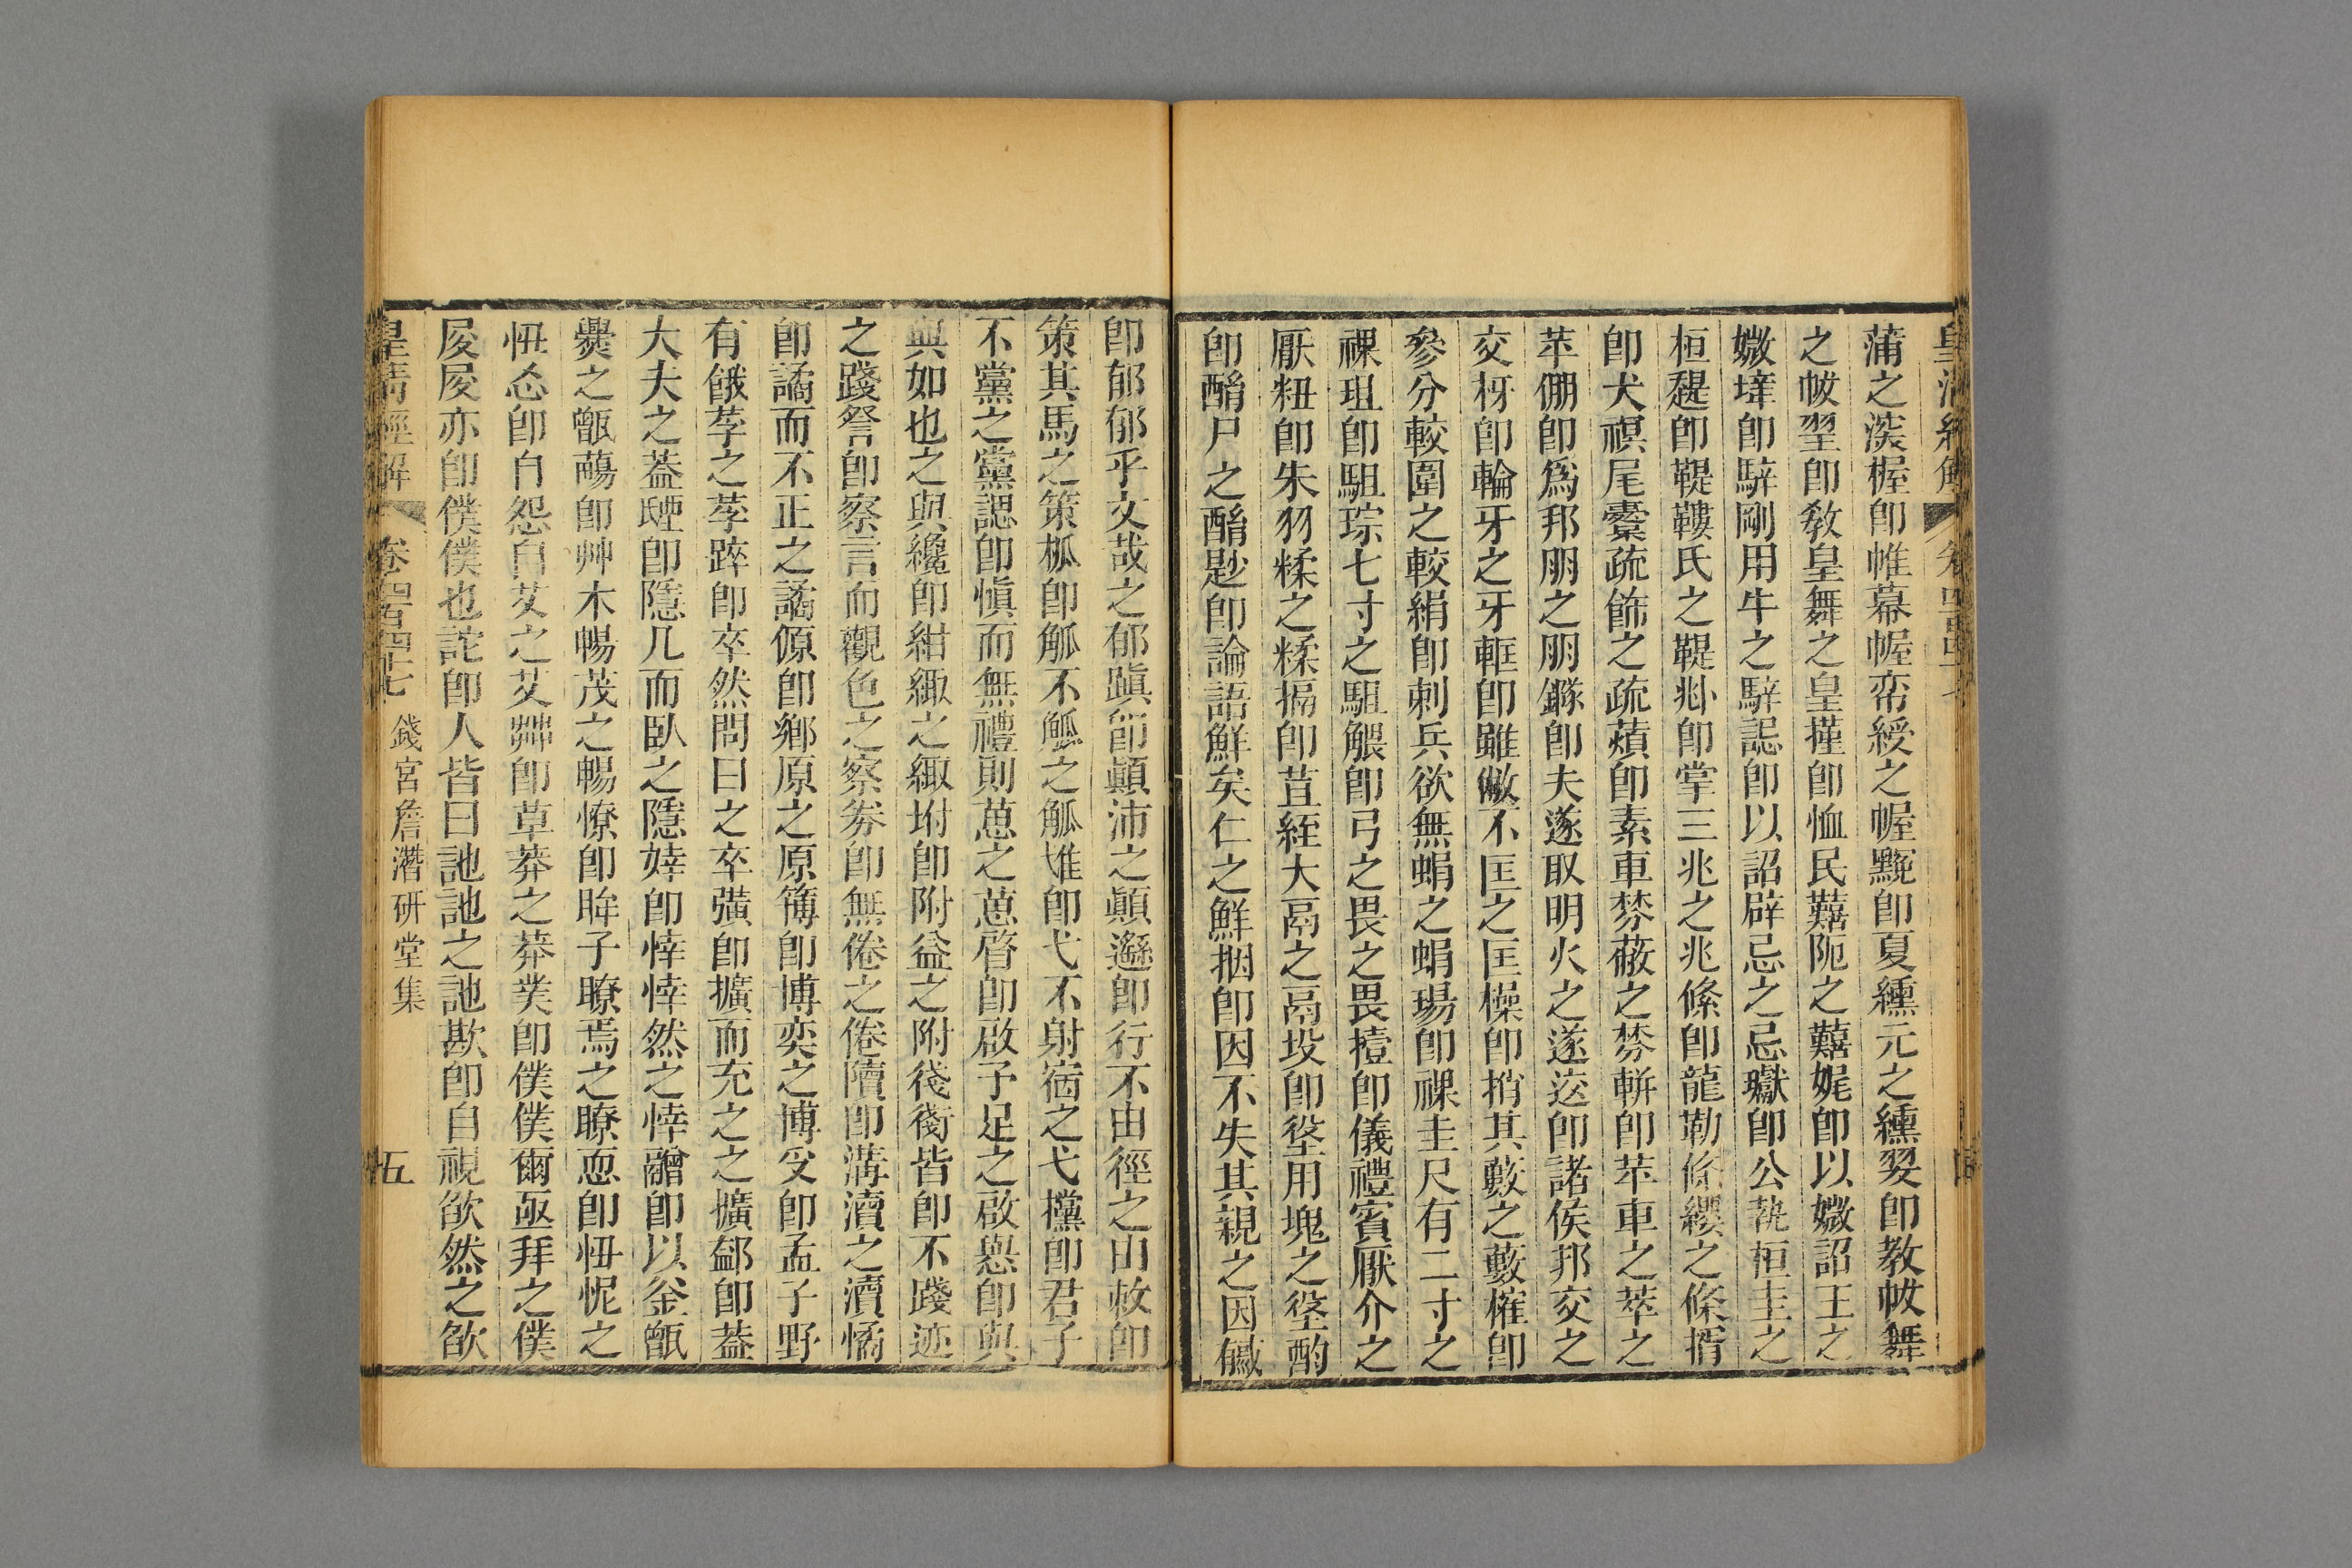 蒲之蒤楃卽帷幕幄帟綬之幄䵳卽夏纁元之纁翇卽教帗舞
之帗翌卽敎皇舞之皇㨷卽恤民囏阨之囏娓卽以媺詔王之
媺墷卽騂剛用牛之騂誋卽以詔辟忌之忌瓛卽公執桓圭之
桓鞮卽鞮鞻氏之鞮𠧞卽掌三兆之兆絛卽龍勒條纓之條揟
卽犬䙢尾櫜疏飾之疏薠卽素車棼蔽之棼軿卽苹車之萃之
苹倗卽爲邦朋之朋鐩卽夫遂取明火之遂迻卽諸侯邦交之
交枒卽輪牙之牙軭卽雖敝不匡之匡橾卽捎其藪之藪㩁卽
參分較圍之較絹卽刺兵欲無蜎之蜎瑒卽祼圭尺有二寸之
祼珇卽駔琮七寸之駔䚈卽弓之畏之畏擅卽儀禮賓厭介之
厭粈卽朱羽糅之糅搹卽苴絰大鬲之鬲坄卽垼用塊之垼酌
卽酳尸之酳尟卽論語鮮矣仁之鮮捆卽因不失其親之因䥴
卽郁郁乎文哉之郁蹎卽顚沛之顚邎卽行不由徑之由敇卽
策其馬之策柧卽觚不觚之觚隿卽弋不射宿之弋攩卽君子
不黨之黨諰卽愼而無禮則葸之葸晵卽啟予足之啟懇卽與
與如也之與纔卽紺緅之緅坿卽附益之附衜衡皆卽不踐迹
之踐詧卽察言而觀色之察劵卽無倦之倦隫卽溝瀆之瀆憰
卽譎而不正之譎傆卽鄉原之原簙卽博奕之博𠬪卽孟子野
有餓莩之莩踤卽卒然問曰之卒彉卽擴而充之之擴郃卽葢
大夫之葢㥯卽隱几而臥之隱婞卽悻悻然之悻䰝卽以釜甑
爨之甑蕩卽艸木暢茂之暢憭卽眸子瞭焉之瞭恧卽忸怩之
忸忥卽自怨自艾之艾茻卽草莽之莽菐卽僕僕爾亟拜之僕
屐屐亦卽僕僕也詑卽人皆曰訑訑之訑歁卽自視欿然之欿
皇淸經解 卷四百四十七 錢宮詹潛硏堂集 五